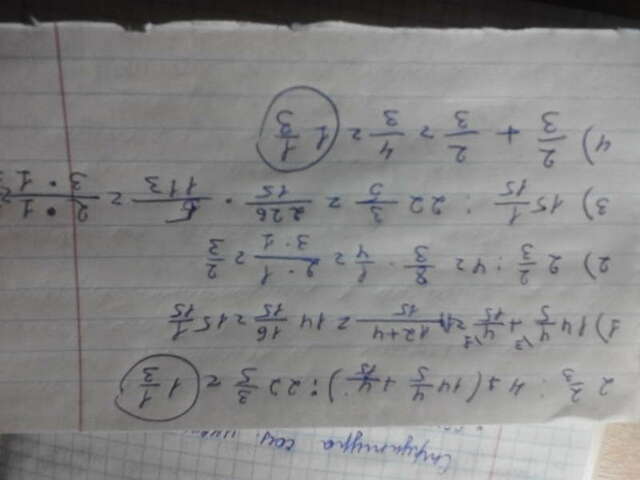 Структура соц.
2 2/3 : 4 + (14 4/5 + 4/15) : 22 3/5 = 1 1/3
1) 14 4/5 + 4/15 = 14 12+4/15 = 14 16/15 = 15 1/15
2) 2 2/3 : 4 = 8/3 · 1/4 = 2·1/3·1 = 2/3
3) 15 1/15 : 22 3/5 = 226/15 · 5/113 = 2·1/3·1 =
4) 2/3 + 2/3 = 4/3 = 1 1/3